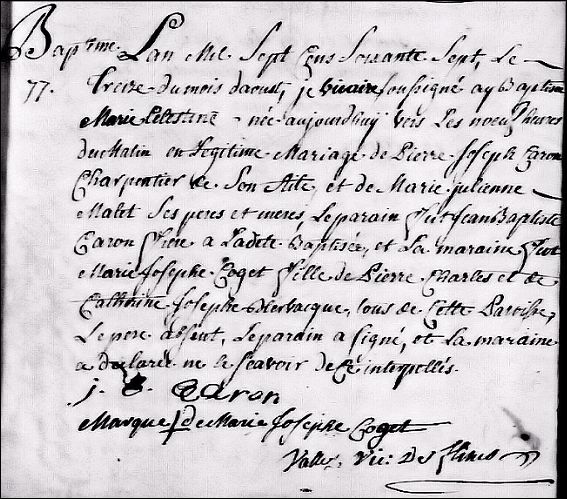 Baptme. L'an Mil Sept Cens Soixante Sept, Le
77. treize du mois d'aoust, je vicaire soussigné ay Baptisé
Marie Celestine née aujourdhuy vers les neuf heures
du Matin en Legitime Mariage de Pierre Joseph Caron
Charpentier de Son Stile, et de Marie julienne
Malet Ses peres et meres, Le parain fut Jean Baptiste
Caron frere a Ladite Baptisée, et La maraine fut
Marie Josephe Coget fille de Pierre Charles et de
Catherine Josephe Hervacque, tous de Cette Paroisse,
Le pere absent, Le parain a signé, et La maraine
a declaré ne le scavoir de ce interpellés
j. B. Caron
Marque de Marie Josephe Coget
Vallez, Vic: Des flines